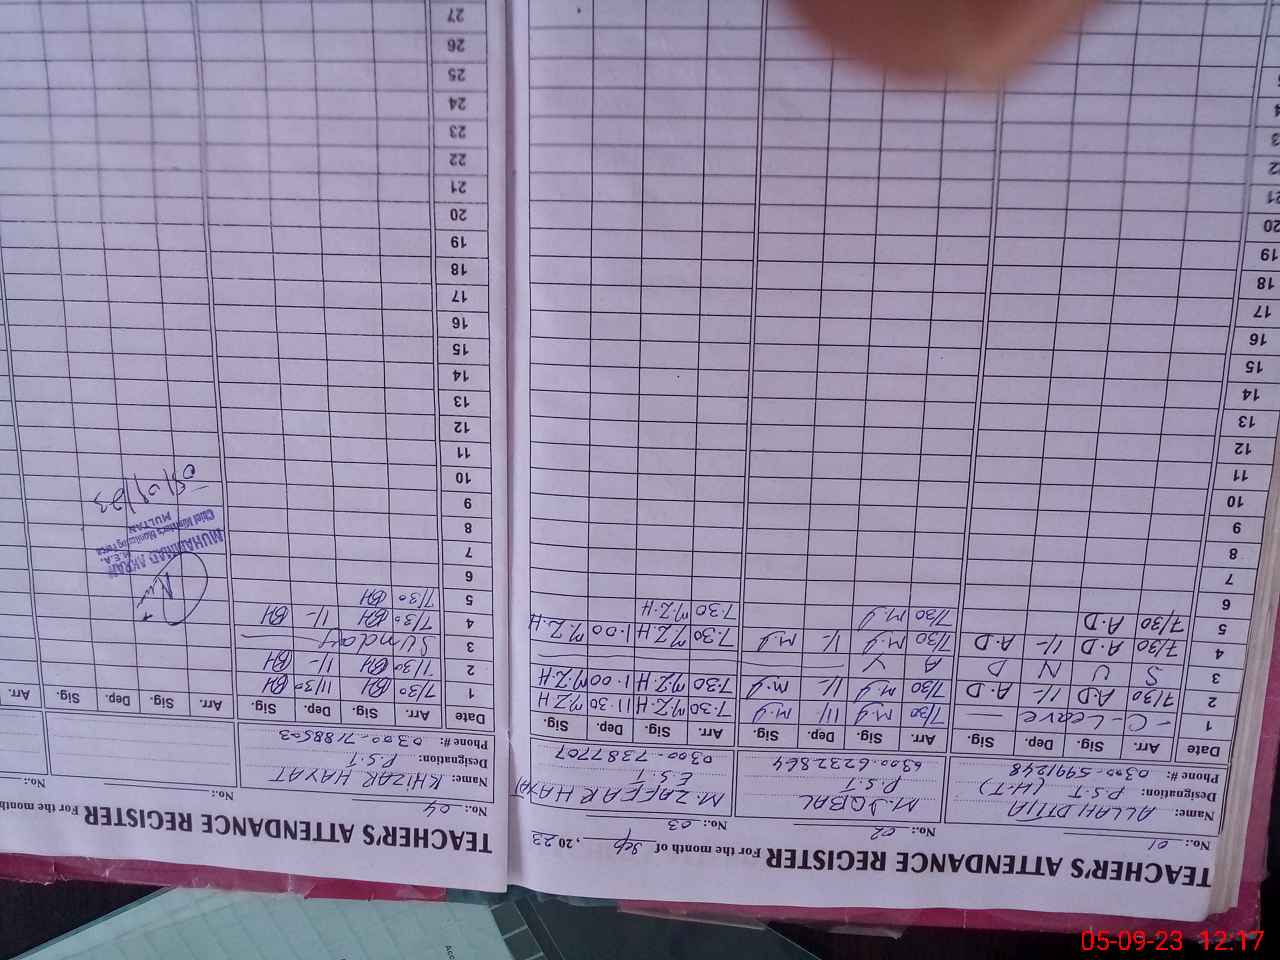 TEACHER'S ATTENDANCE REGISTER For the month of Sep, 2023
No.: 01
Name: ALLAH DITTA
Designation: P.S.T (H.T)
Phone #: 0300-5991248
No.: 02
M. IQBAL
P.S.T
0300-6232864
No.: 03
M. ZAFFAR HAYAT
E.S.T
0300-7387707
Date Arr. Sig. Dep. Sig. Arr. Sig. Dep. Sig. Arr. Sig. Dep. Sig.
1 - C - Leave - 7/30 M.I 11/ M.I 7.30 M.Z.H 11.30 M.Z.H
2 7/30 A.D 1/- A.D 7/30 M.I 1/- M.I 7.30 M.Z.H 1.00 M.Z.H
3 S U N D A Y
4 7/30 A.D 1/- A.D 7/30 M.I 1/- M.I 7.30 M.Z.H 1.00 M.Z.H
5 7/30 A.D 7/30 M.I 7.30 M.Z.H
6
7
8
9
10
11
12
13
14
15
16
17
18
19
20
21
22
TEACHER'S ATTENDANCE REGISTER For the month
No.: 04
Name: KHIZAR HAYAT
Designation: P.S.T
Phone #: 0300-7188503
No.:
No.:
Date Arr. Sig. Dep. Sig. Arr. Sig. Dep. Sig. Arr.
1 7/30 BH 11/30 BH
2 7/30 BH 1/- BH
3 Sunday
4 7/30 BH 1/- BH
5 7/30 BH
6
7
8
9
10
11
12
13
14
15
16
17
18
19
20
21
22
23
24
25
26
27
MUHAMMAD AKRAM
M.E.A.
Chief Minister's Monitoring Force
MULTAN
05/09/23
05-09-23 12:17